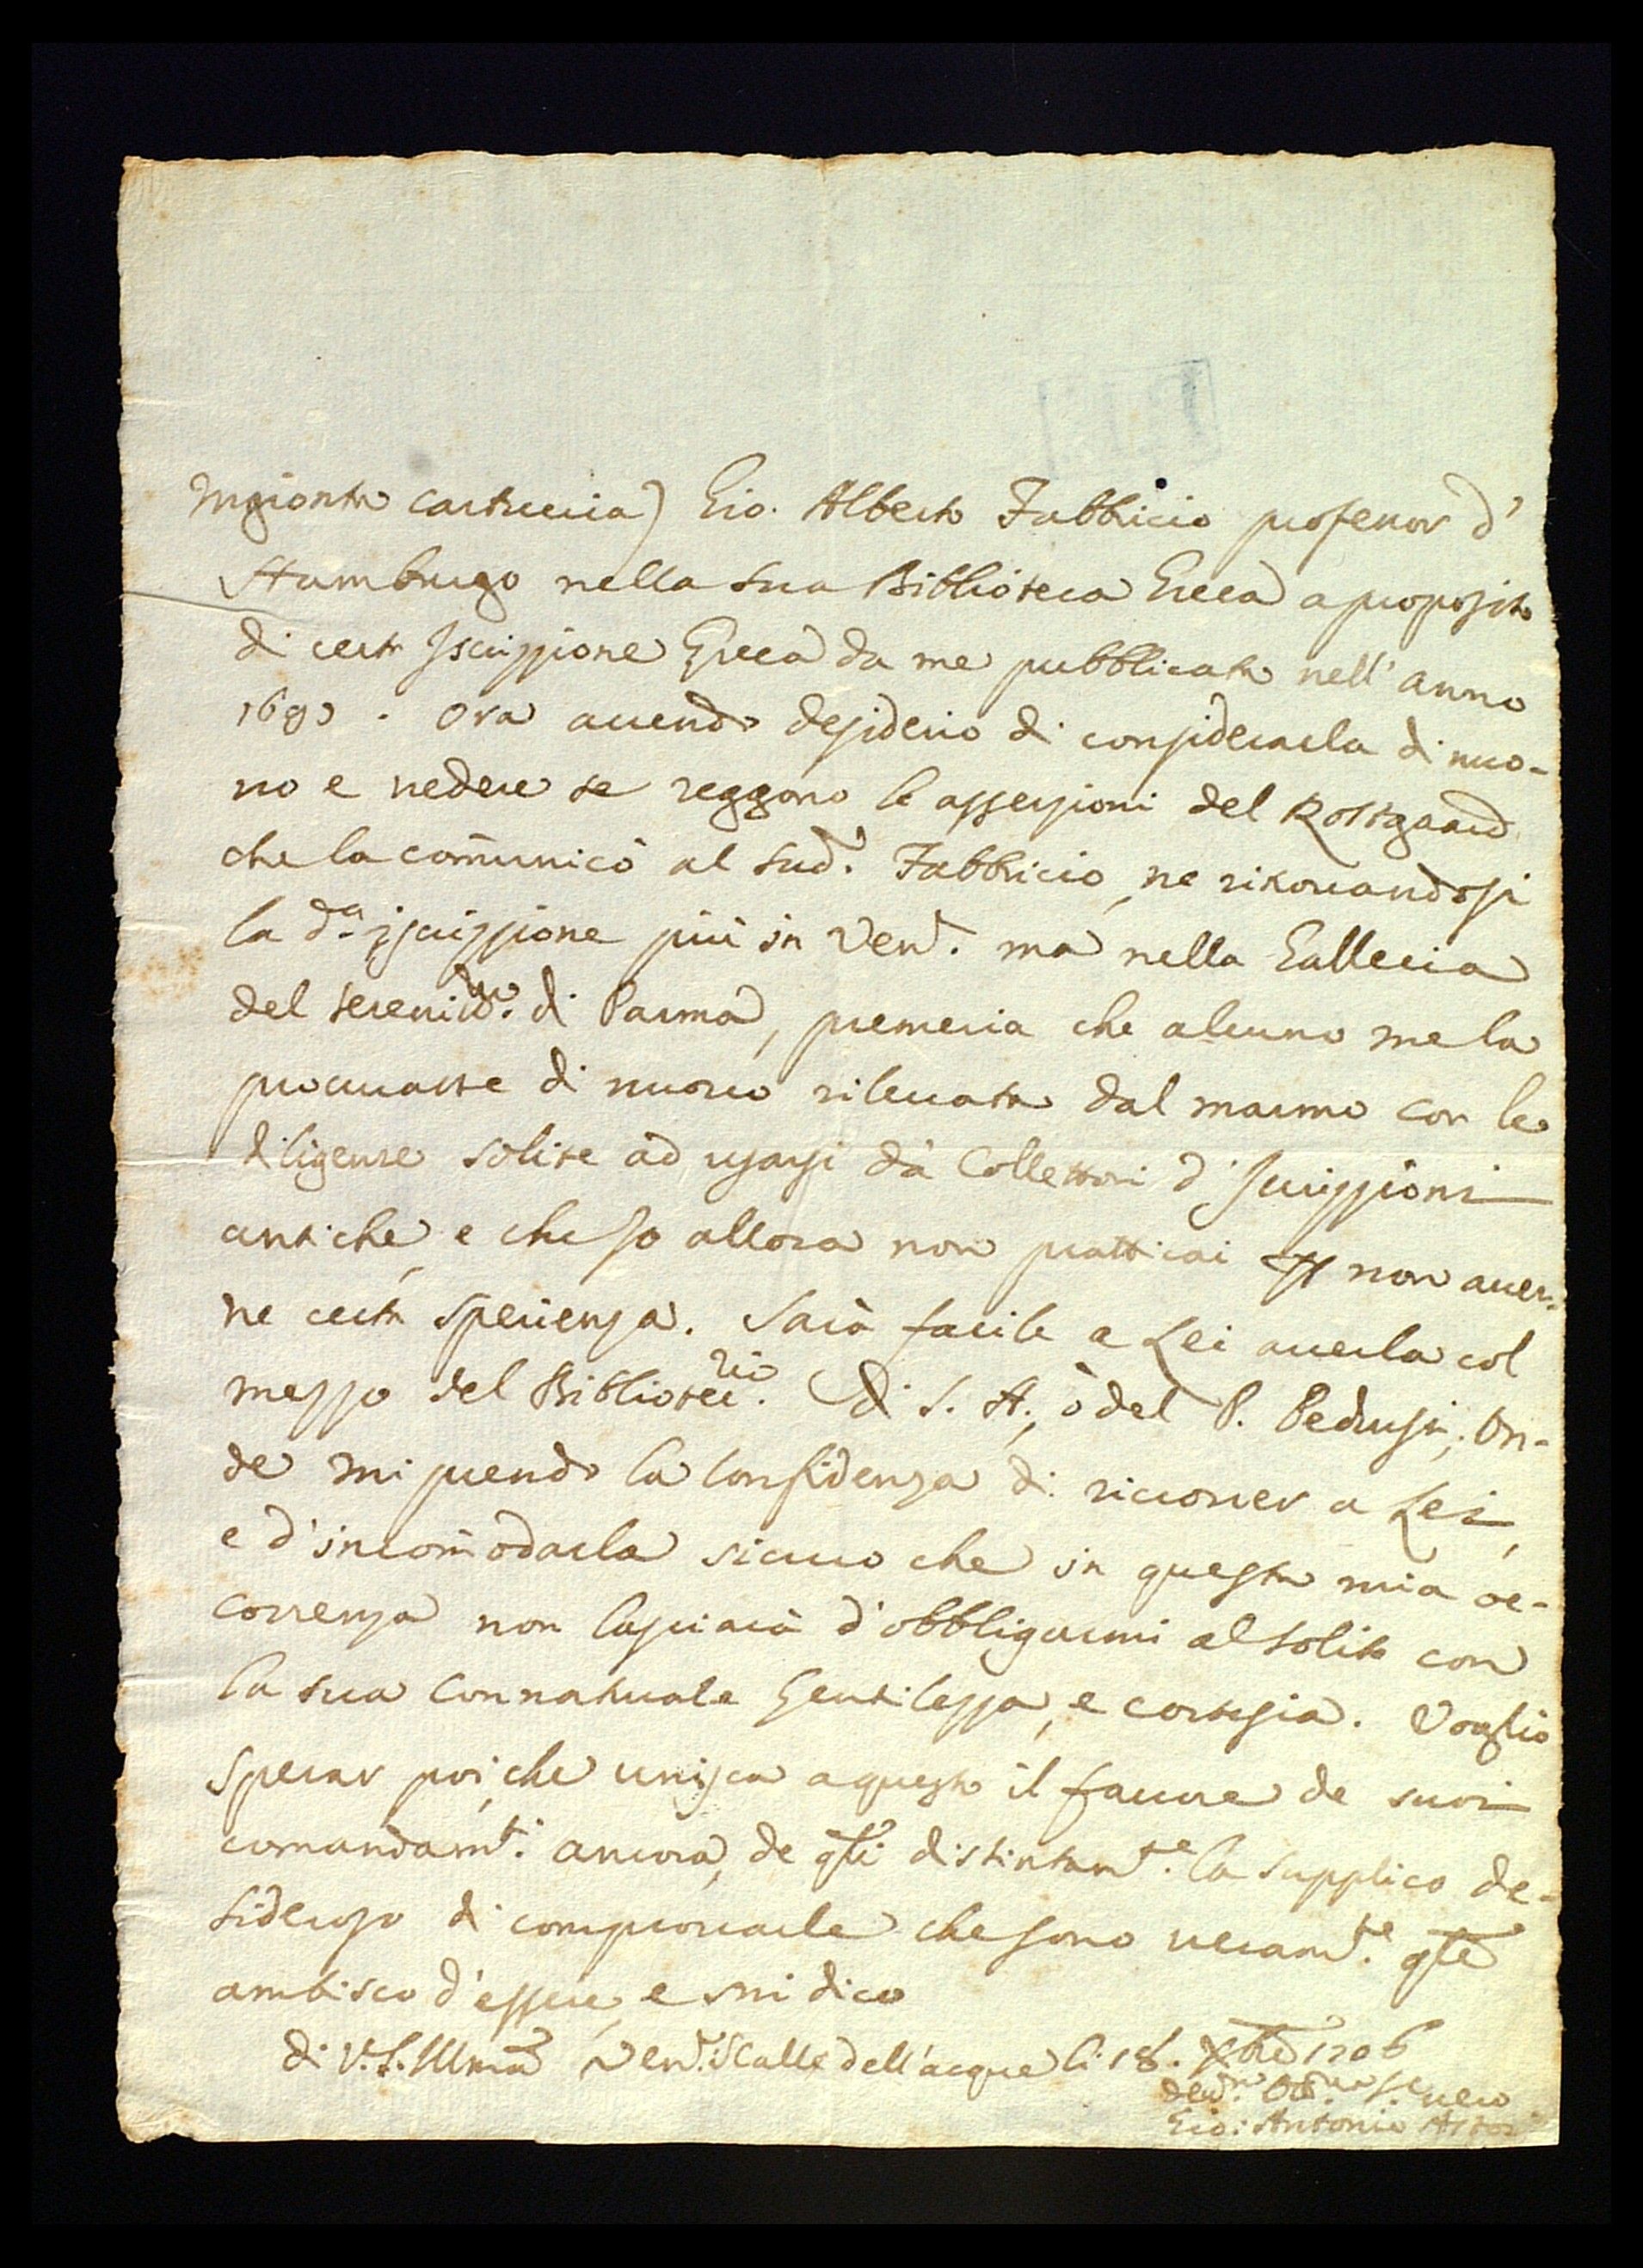 Ingionta cartuccia) Gio. Alberto Fabbricio professor d'
Hamburgo nella sua Biblioteca Greca a proposito
di certa Iscrizzione Greca da me pubblicata nell' anno
Ora auendo desiderio di considerarla di nuo-
uo e uedere se reggono le assersioni del Rostgaard
che la com̃unicò al sud.º Fabbricio, ne ritrouandosi
la d.ª iscrizzione più in Ven.ª ma nella Galleria
del Sereniss.mo di Parma, premeria che alcuno me la
procurasse di nuouo rileuata dal marmo con le
diligenze solite ad usarsi dà Collettori d' Iscrizzioni
antiche, e che Io allora non pratticai ꝑ non auer-
ne certa sperienza. Sarà facile a Lei auerla col
mezzo del Bibliotec.rio di S. A., ò del P. Pedrusi; On-
de mi prendo la confidenza di ricorrer a Lei,
e d'incom̃odarla sicuro che in questa mia oc-
correnza non lascierà d'obbligarmi al solito con
la sua connaturale Gentilezza, e cortesia. Voglio
sperar poi, che unisca a questo il fauore de suoi
comandam.ti ancora, de q̃li distintam.te la supplico de-
sideroso di comprouarle che sono ueram.te q̃le
ambisco d'essere, e mi dico
di V. S. Illma Ven.ª Calle dell'acque li 18. Xbre 1706
deu.mo Obb.mo Se. uero
Gio: Antonio Astori